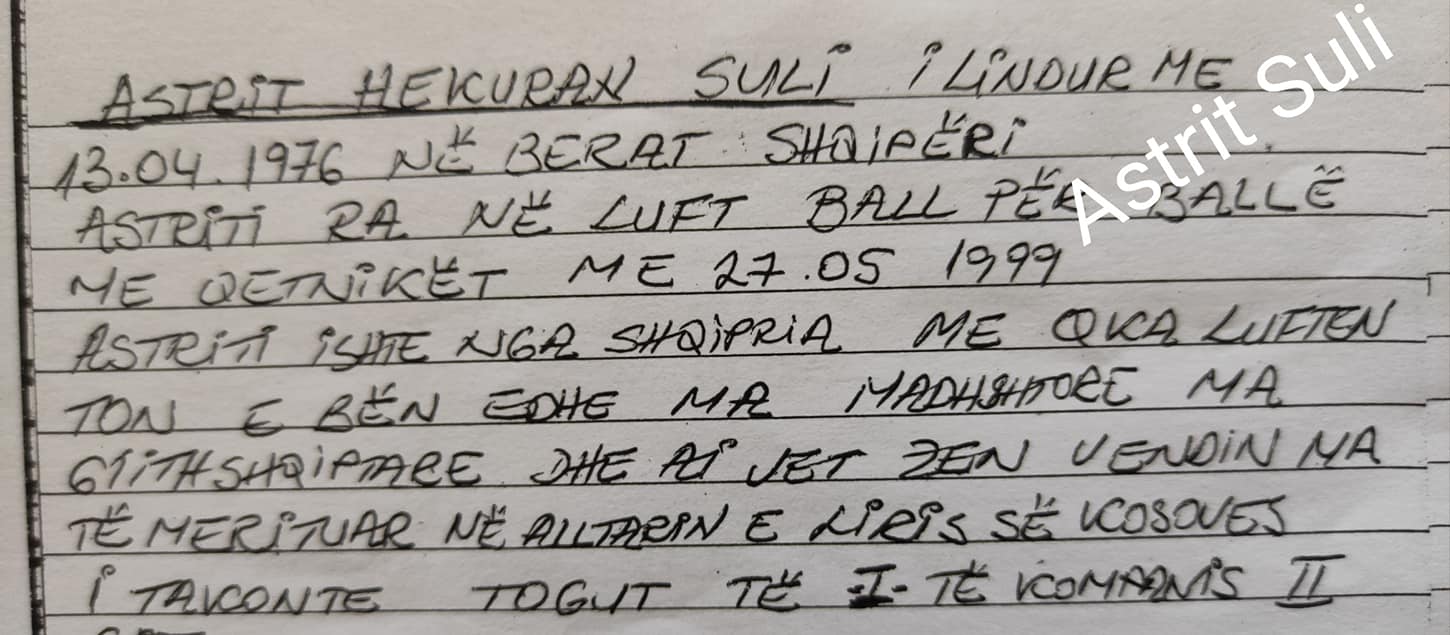 ASTRIT HEKURAN SULI I LINDUR ME
13.04.1976 NË BERAT SHQIPËRI
ASTRITI RA NË LUFT BALL PËR BALLË
ME QETNIKËT ME 27.05 1999
ASTRITI ISHTE NGA SHQIPRIA ME QKA LUFTEN
TON E BËN EDHE MA MADHSHTORE MA
GJITHSHQIPTARE DHE AI VET ZEN VENDIN MA
TË MERITUAR NË ALLTARIN E LIRIS SË KOSOVES
I TAKONTE TOGUT TË -I- TË KOMPANIS II
Astrit Suli